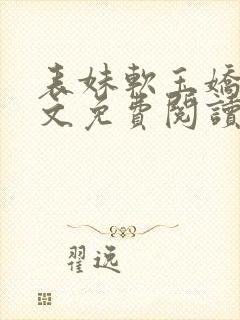 表妹軟玉嬌
文免費閱讀
翟逸